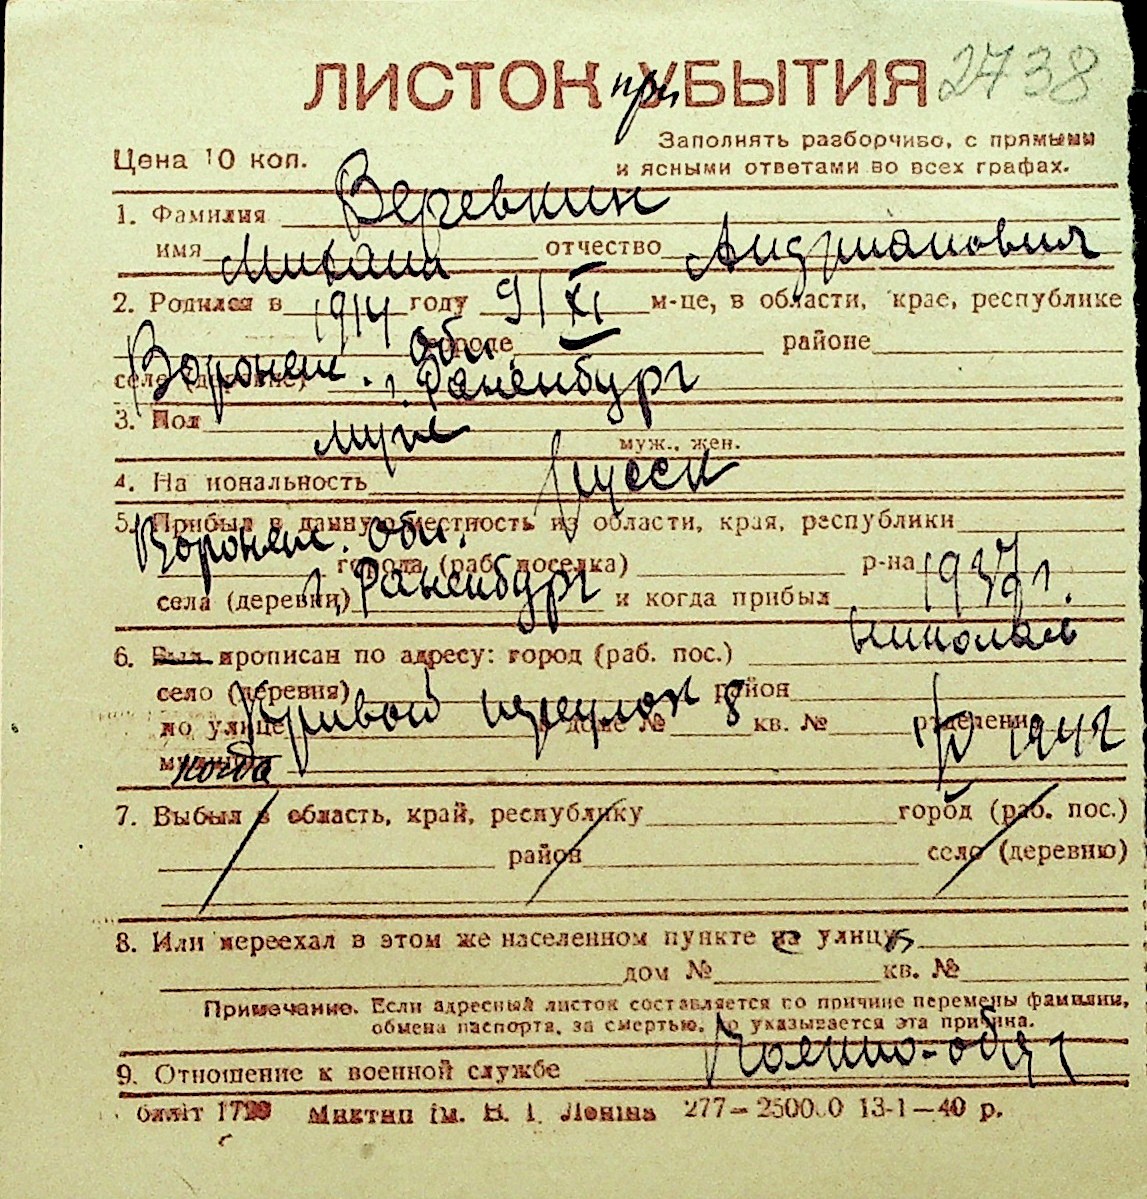 ЛИСТОК при УБЫТИЯ 2738
Заполнять разборчиво, с прямыми
Цена 10 коп. и ясными ответами во всех графах.
1. Фамилия Веревкин
имя Михаил отчество Андрианович
2. Родился в 1914 году 9/XI м-це, в области, крае, республике
Воронеж. обл. городе районе
село (деревне) г. Раненбург
3. Пол муж
муж., жен.
4. На иональность русск
5. Прибыл в данную местность из области, края, республики
Воронеж. обл. города (раб. поселка) р-на 1937 г.
села (деревни) г. Раненбург и когда прибыл
6. Был прописан по адресу: город (раб. пос.) Николаев
село (деревня) район
по улице Кривой переулок дом № 8 кв. № отделение
когда 1942
7. Выбыл в область, край, республику город (раб. пос.)
район село (деревню)
8. Или переехал в этом же населенном пункте на улицу
дом № кв. №
Примечание. Если адресный листок составляется по причине перемены фамилии,
обмена паспорта, за смертью, то указывается эта причина.
9. Отношение к военной службе Военно-обяз
Миктип ім. В. І. Леніна 277—250000 13-1—40 р.